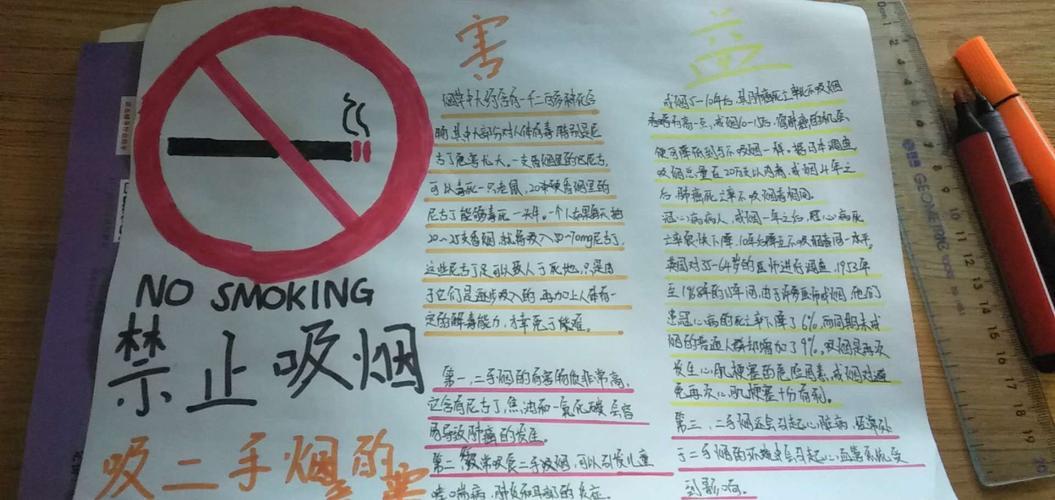 NO SMOKING
禁止吸烟
吸二手烟的害
害
烟草中大约含有一千二百多种化合
物,其中大部分对人体有毒,特别是尼
古丁危害尤大。一支香烟里的尼古丁,
可以毒死一只老鼠,20支香烟里的
尼古丁能够毒死一头牛。一个人如果每天抽
20~25支香烟,就将吸入50~70mg尼古丁,
这些尼古丁足可以致人于死地,只是由
于它们是逐步吸入的,再加上人体有一
定的解毒能力,才幸免于难。
第一,二手烟的有害物质非常高,
它含有尼古丁,焦油和一氧化碳,会容
易导致肺癌的发生。
第二,经常吸食二手吸烟,可以引发儿童
哮喘病,肺炎和耳部的炎症。
益
戒烟5-10年后,其肺癌死亡率比不吸烟
者略为高一点,戒烟10-15后,得肺癌的机会
便可降低到与不吸烟一样。据日本调查
吸烟总量在20万支以内者,戒烟4年之
后,肺癌死亡率不吸烟者相同。
冠心病病人,戒烟一年之后,冠心病死
亡率很快下降,10年后降至不吸烟者同一水平。
英国对35-64岁的医师进行调查,1953年
至1968年的15年间,由于许多医师戒烟,他们
患冠心病的死亡率下降了6%,而同期未戒
烟的普通人群却增加了9%。吸烟是再次
发生心肌梗塞的危险因素,戒烟对避
免再次心肌梗塞十分有利。
第三,二手烟还会引起心脏病,经常处
于二手烟的环境中会引起心血管系统受
到影响。